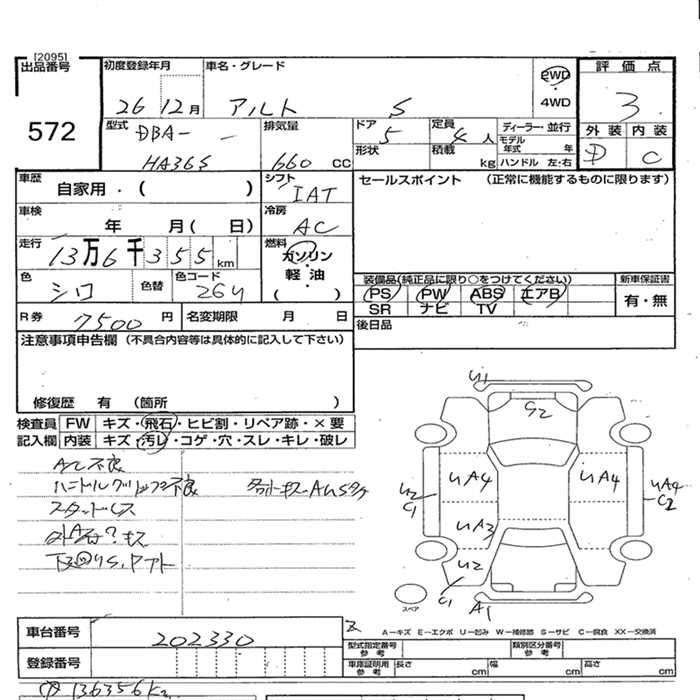 [2095]
出品番号
572
初度登録年月
26 12月
車名・グレード
アルト S
2WD
4WD
評価点
3
外装 内装
D C
型式
DBA-
HA36S
排気量
660 cc
ドア
5
形状
定員
4 人
積載
kg
ディーラー・並行
モデル年式 年
ハンドル 左・右
車歴
自家用・( )
シフト
IAT
セールスポイント (正常に機能するものに限ります)
車検
年 月( 日)
冷房
AC
走行
13万6千355 km
燃料
ガソリン
軽油
( )
色
シロ
色替
色コード
26U
装備品(純正品に限り○をつけてください)
PS PW ABS エアB
SR ナビ TV
新車保証書
有・無
R券
7500 円
名変期限 月 日
後日品
注意事項申告欄 (不具合内容等は具体的に記入して下さい)
修復歴 有 (箇所 )
検査員 FW キズ・飛石・ヒビ割・リペア跡・×要
記入欄 内装 キズ・汚レ・コゲ・穴・スレ・キレ・破レ
A/C不良
スタッドレス
U1
G2
UA4 UA4
U2
C1
UA4
C2
UA3
U2
C1
A1
スペア
A-キズ E-エクボ U-凹み W-補修跡 S-サビ C-腐食 XX-交換済
車台番号
202330
登録番号
型式指定番号 参考
類別区分番号 参考
車庫証明用 参考
長さ cm
幅 cm
高さ cm
136356km